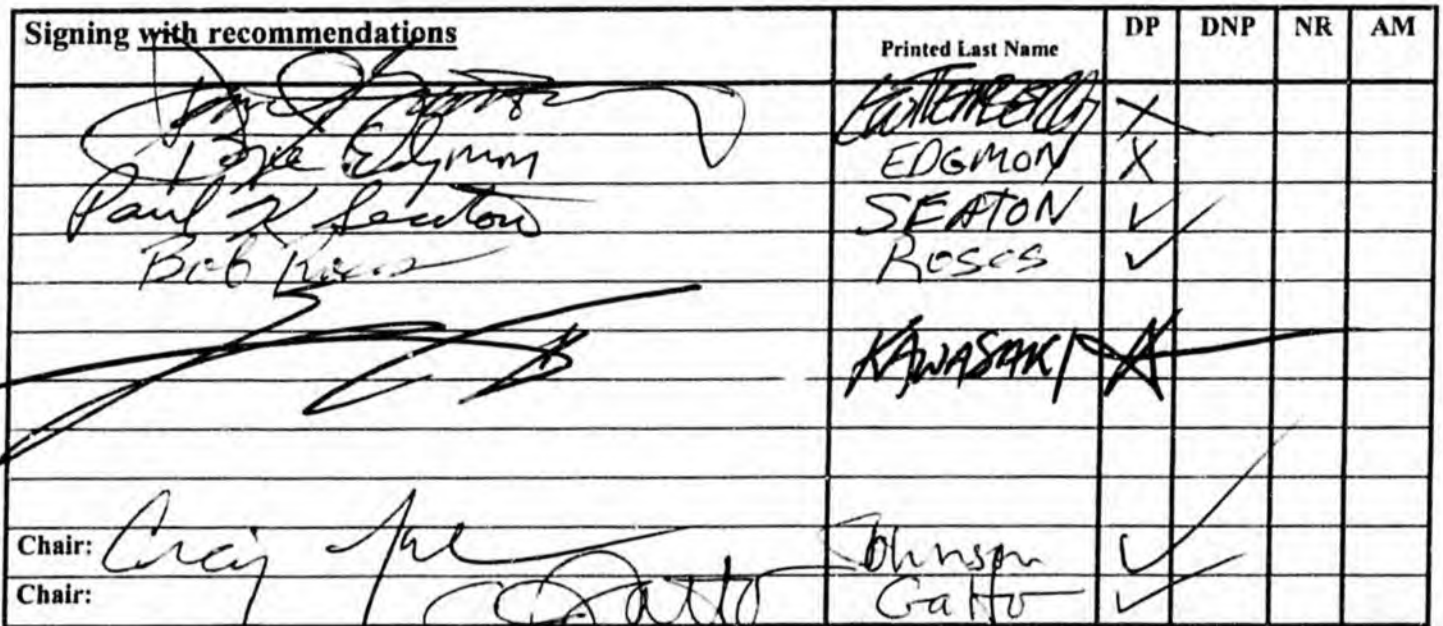 Signing with recommendations Printed Last Name DP DNP NR AM
GUTTENBERG X
Bryce Edgmon EDGMON X
Paul K Seaton SEATON ✓
Bob Roses ROSES ✓
KAWASAKI X
Chair: Craig Johnson ✓
Chair: Gatto Gatto ✓